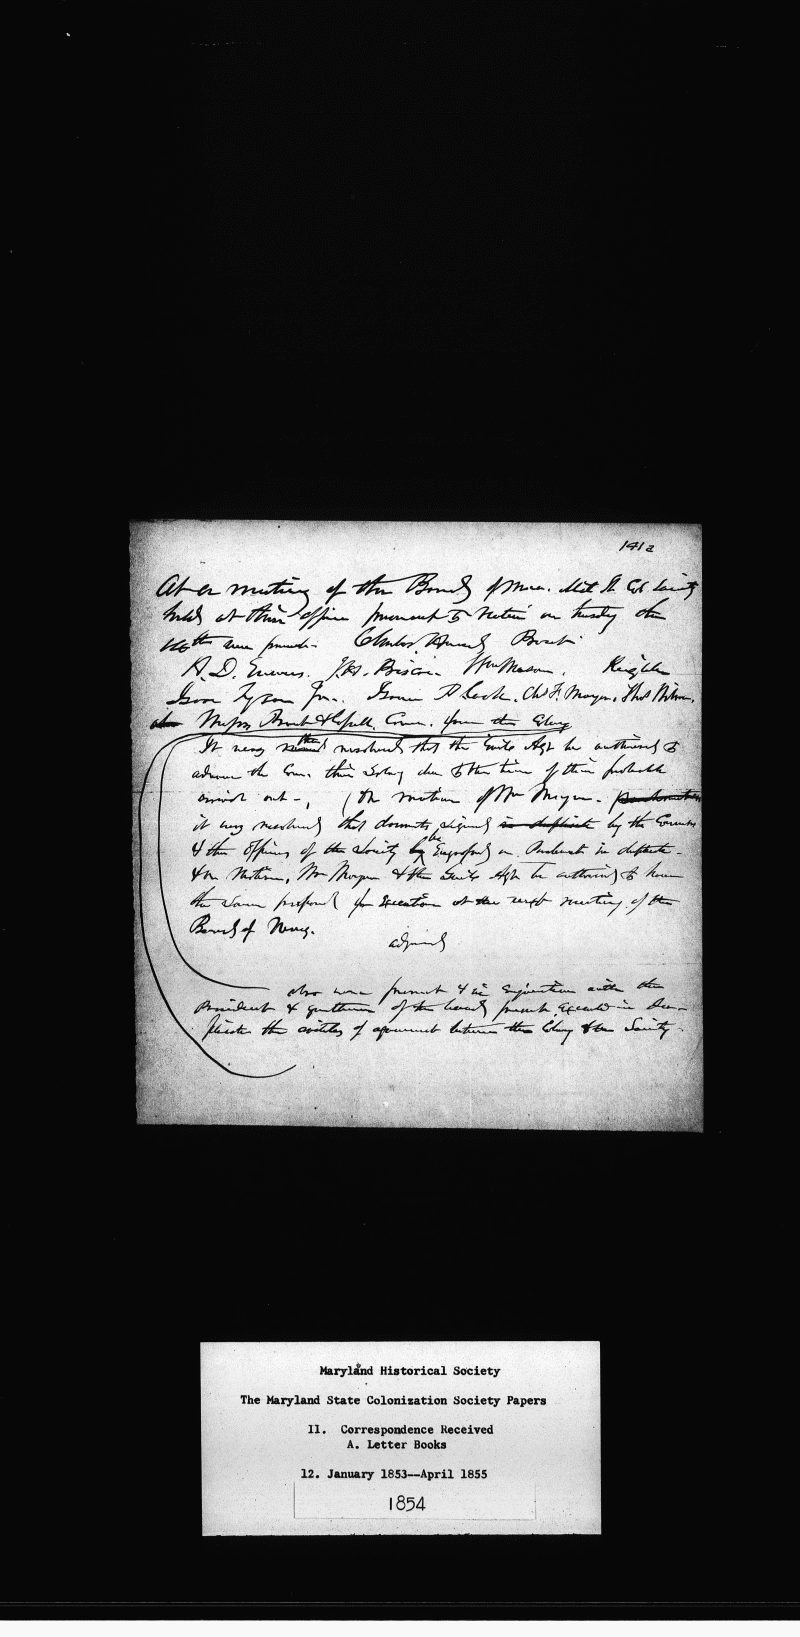 141a
At a meeting of the Board of Man. Md St Col Society
held at their office pursuant to notice on Tuesday the
th were present Charles Howard Prest
A. D. Evans. Wm Mason. Knighton
Isaac Tyson Jr. Chs F. Mayer. Thos Wilson.
Messrs Prout & Cassell. Com. from the Colony
It was then resolved that the Genl Agt be authorised to
advance the Com. their Salary due to the time of their probable
arrival out -, (On motion of Mr Mayer.
it was resolved that documts signed in duplicate by the Comrs
& the Officers of the Society be Engrossed on Parchment in duplicate.
& on Motion, Mr Mayer & the Genl Agt be authorised to have
the same prepared for execution at the next meeting of the
Board of Mang.
adjourned
also were present & in conjunction with the
President & gentlemen of the board present executed in Du-
plicate the articles of agreement between the Colony & the Society.
Maryland Historical Society
The Maryland State Colonization Society Papers
11. Correspondence Received
A. Letter Books
12. January 1853--April 1855
1854